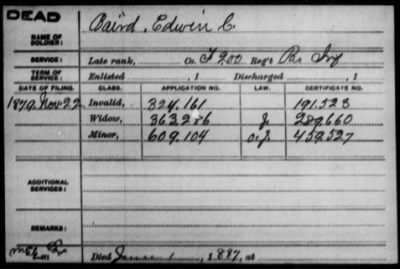 DEAD
NAME OF SOLDIER: Baird, Edwin C.
SERVICE: Late rank, Co. F 200 Reg't Pa. Inf
TERM OF SERVICE: Enlisted , 1 Discharged , 1
DATE OF FILING. CLASS. APPLICATION NO. LAW. CERTIFICATE NO.
1879, Nov. 22 Invalid, 324.161 191.523
Widow, 363286 J. 289660
Minor, 609.104 O.J. 459527
ADDITIONAL SERVICES:
REMARKS:
Died 1, 1887, at